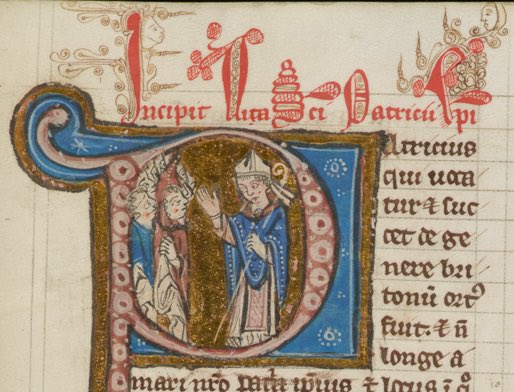 Incipit Uita Sci Patricii Epi
Patricius
qui uoca
tur ⁊ suc
cet de ge
nere bri
tonū ort⁹
fuit. ⁊ ñ
longe a
mari nr̄o